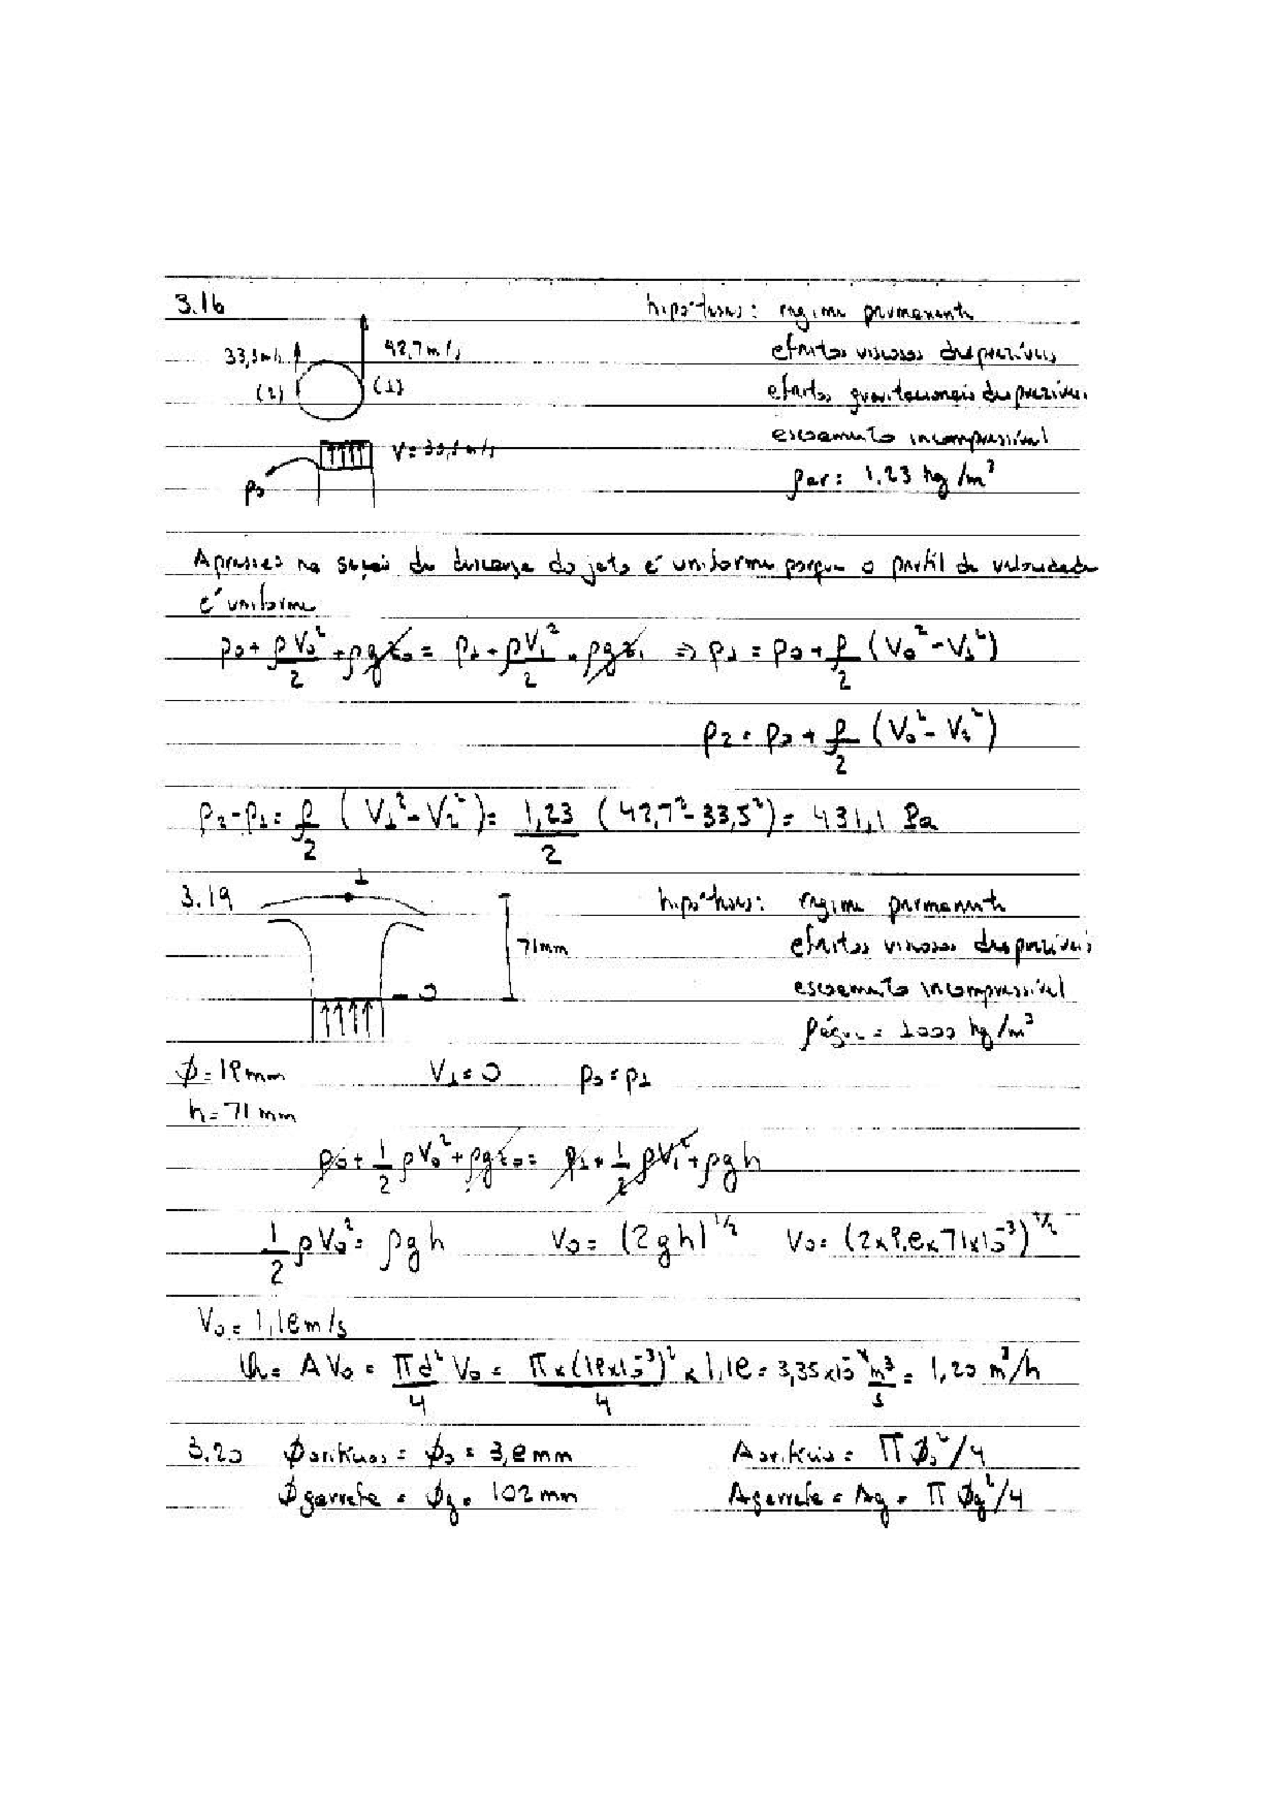 3.16
hipóteses: regime permanente
33,5 m/s 42,7 m/s
efeitos viscosos desprezíveis
(2) (1)
efeitos gravitacionais desprezíveis
V = 33,5 m/s
escoamento incompressível
p0
ρar = 1,23 kg/m³
A pressão na seção de descarga do jato é uniforme porque o perfil de velocidade
é uniforme
p0 + ρV0²/2 + ρgz0 = p1 + ρV1²/2 + ρgz1 ⇒ p1 = p0 + ρ/2 (V0² - V1²)
p2 = p0 + ρ/2 (V0² - V2²)
p2 - p1 = ρ/2 (V1² - V2²) = 1,23/2 (42,7² - 33,5²) = 431,1 Pa
3.19
1
hipóteses: regime permanente
71mm
efeitos viscosos desprezíveis
0
escoamento incompressível
ρágua = 1000 kg/m³
ϕ = 19mm V1 = 0 p0 = p1
h = 71 mm
p0 + 1/2 ρV0² + ρgz0 = p1 + 1/2 ρV1² + ρgh
1/2 ρV0² = ρgh V0 = (2gh)^1/2 V0 = (2x9,8x71x10⁻³)^1/2
V0 = 1,18 m/s
Q = AV0 = πd²/4 V0 = πx(19x10⁻³)²/4 x 1,18 = 3,35x10⁻⁴ m³/s = 1,20 m³/h
3.20 ϕorifícios = ϕ0 = 3,8mm Aorifício = πϕ0²/4
ϕgarrafa = ϕg = 102 mm Agarrafa = Ag = πϕg²/4